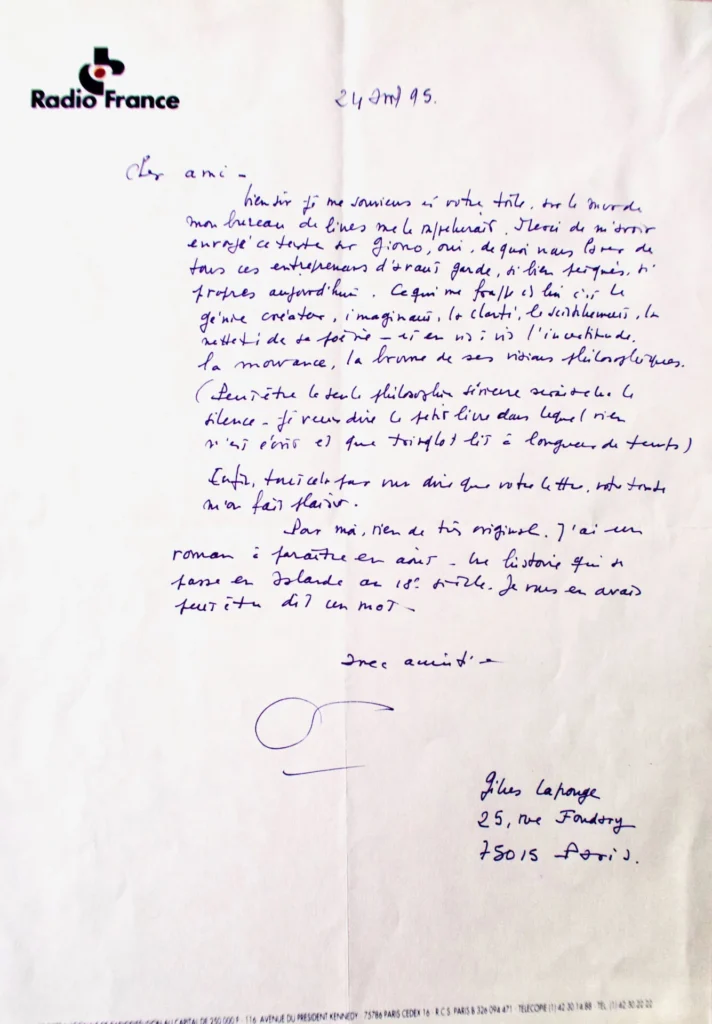 Radio France
24 Avril 95.
Cher ami –
bien sûr je me souviens et votre toile, sur le mur de
mon bureau de livres me le rappelerait. Merci de m'avoir
envoyé ce texte sur Giono, oui, de quoi nous laver de
tous ces entrepreneurs d'avant garde, si bien peignés, si
propres aujourd'hui. Ce qui me frappe chez lui c'est le
génie créateur, imaginant, la clarté, le scintillement, la
netteté de sa poésie – et en vis à vis l'incertitude,
la mouvance, la brume de ses visions philosophiques.
(Peut être le seule philosophie sérieuse serait elle le
silence – je veux dire le petit livre dans lequel rien
n'est écrit et que Tringlot lit à longueur de temps)
Enfin, tout cela pour vous dire que votre lettre, votre
m'a fait plaisir.
Pour moi, rien de très original. J'ai un
roman à paraître en août – Une histoire qui se
passe en Islande au 18e siècle. Je vous en avais
peut être dit un mot –
Avec amitié –
Gilles Lapouge
25, rue Fondary
75015 Paris.
AU CAPITAL DE 250 000 F · 116, AVENUE DU PRESIDENT KENNEDY · 75786 PARIS CEDEX 16 · R.C.S. PARIS B 326 094 471 · TELECOPIE (1) 42 30 14 88 · TEL. (1) 42 30 22 22